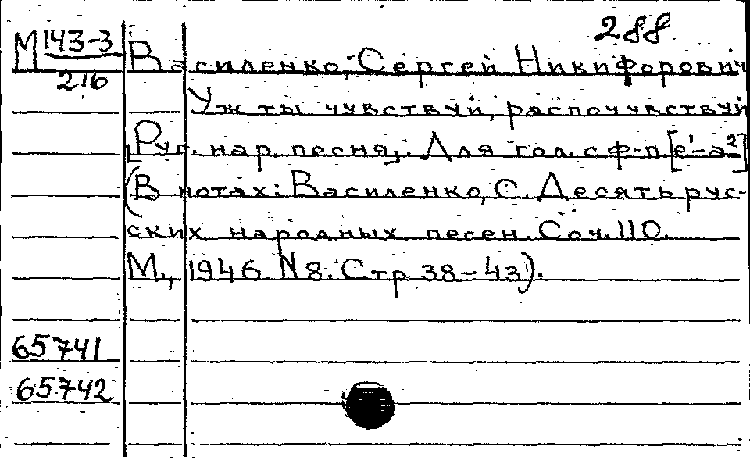 288
М 143-3 Василенко, Сергей Никифорович
216
Уж ты чувствуй, распочувствуй
[Рус. нар. песня]. Для гол. с ф-п. [e¹-a²]
(В нотах: Василенко, С. Десять рус-
ских народных песен. Соч. 110.
М., 1946. N 8. Стр 38-43).
65741
65742